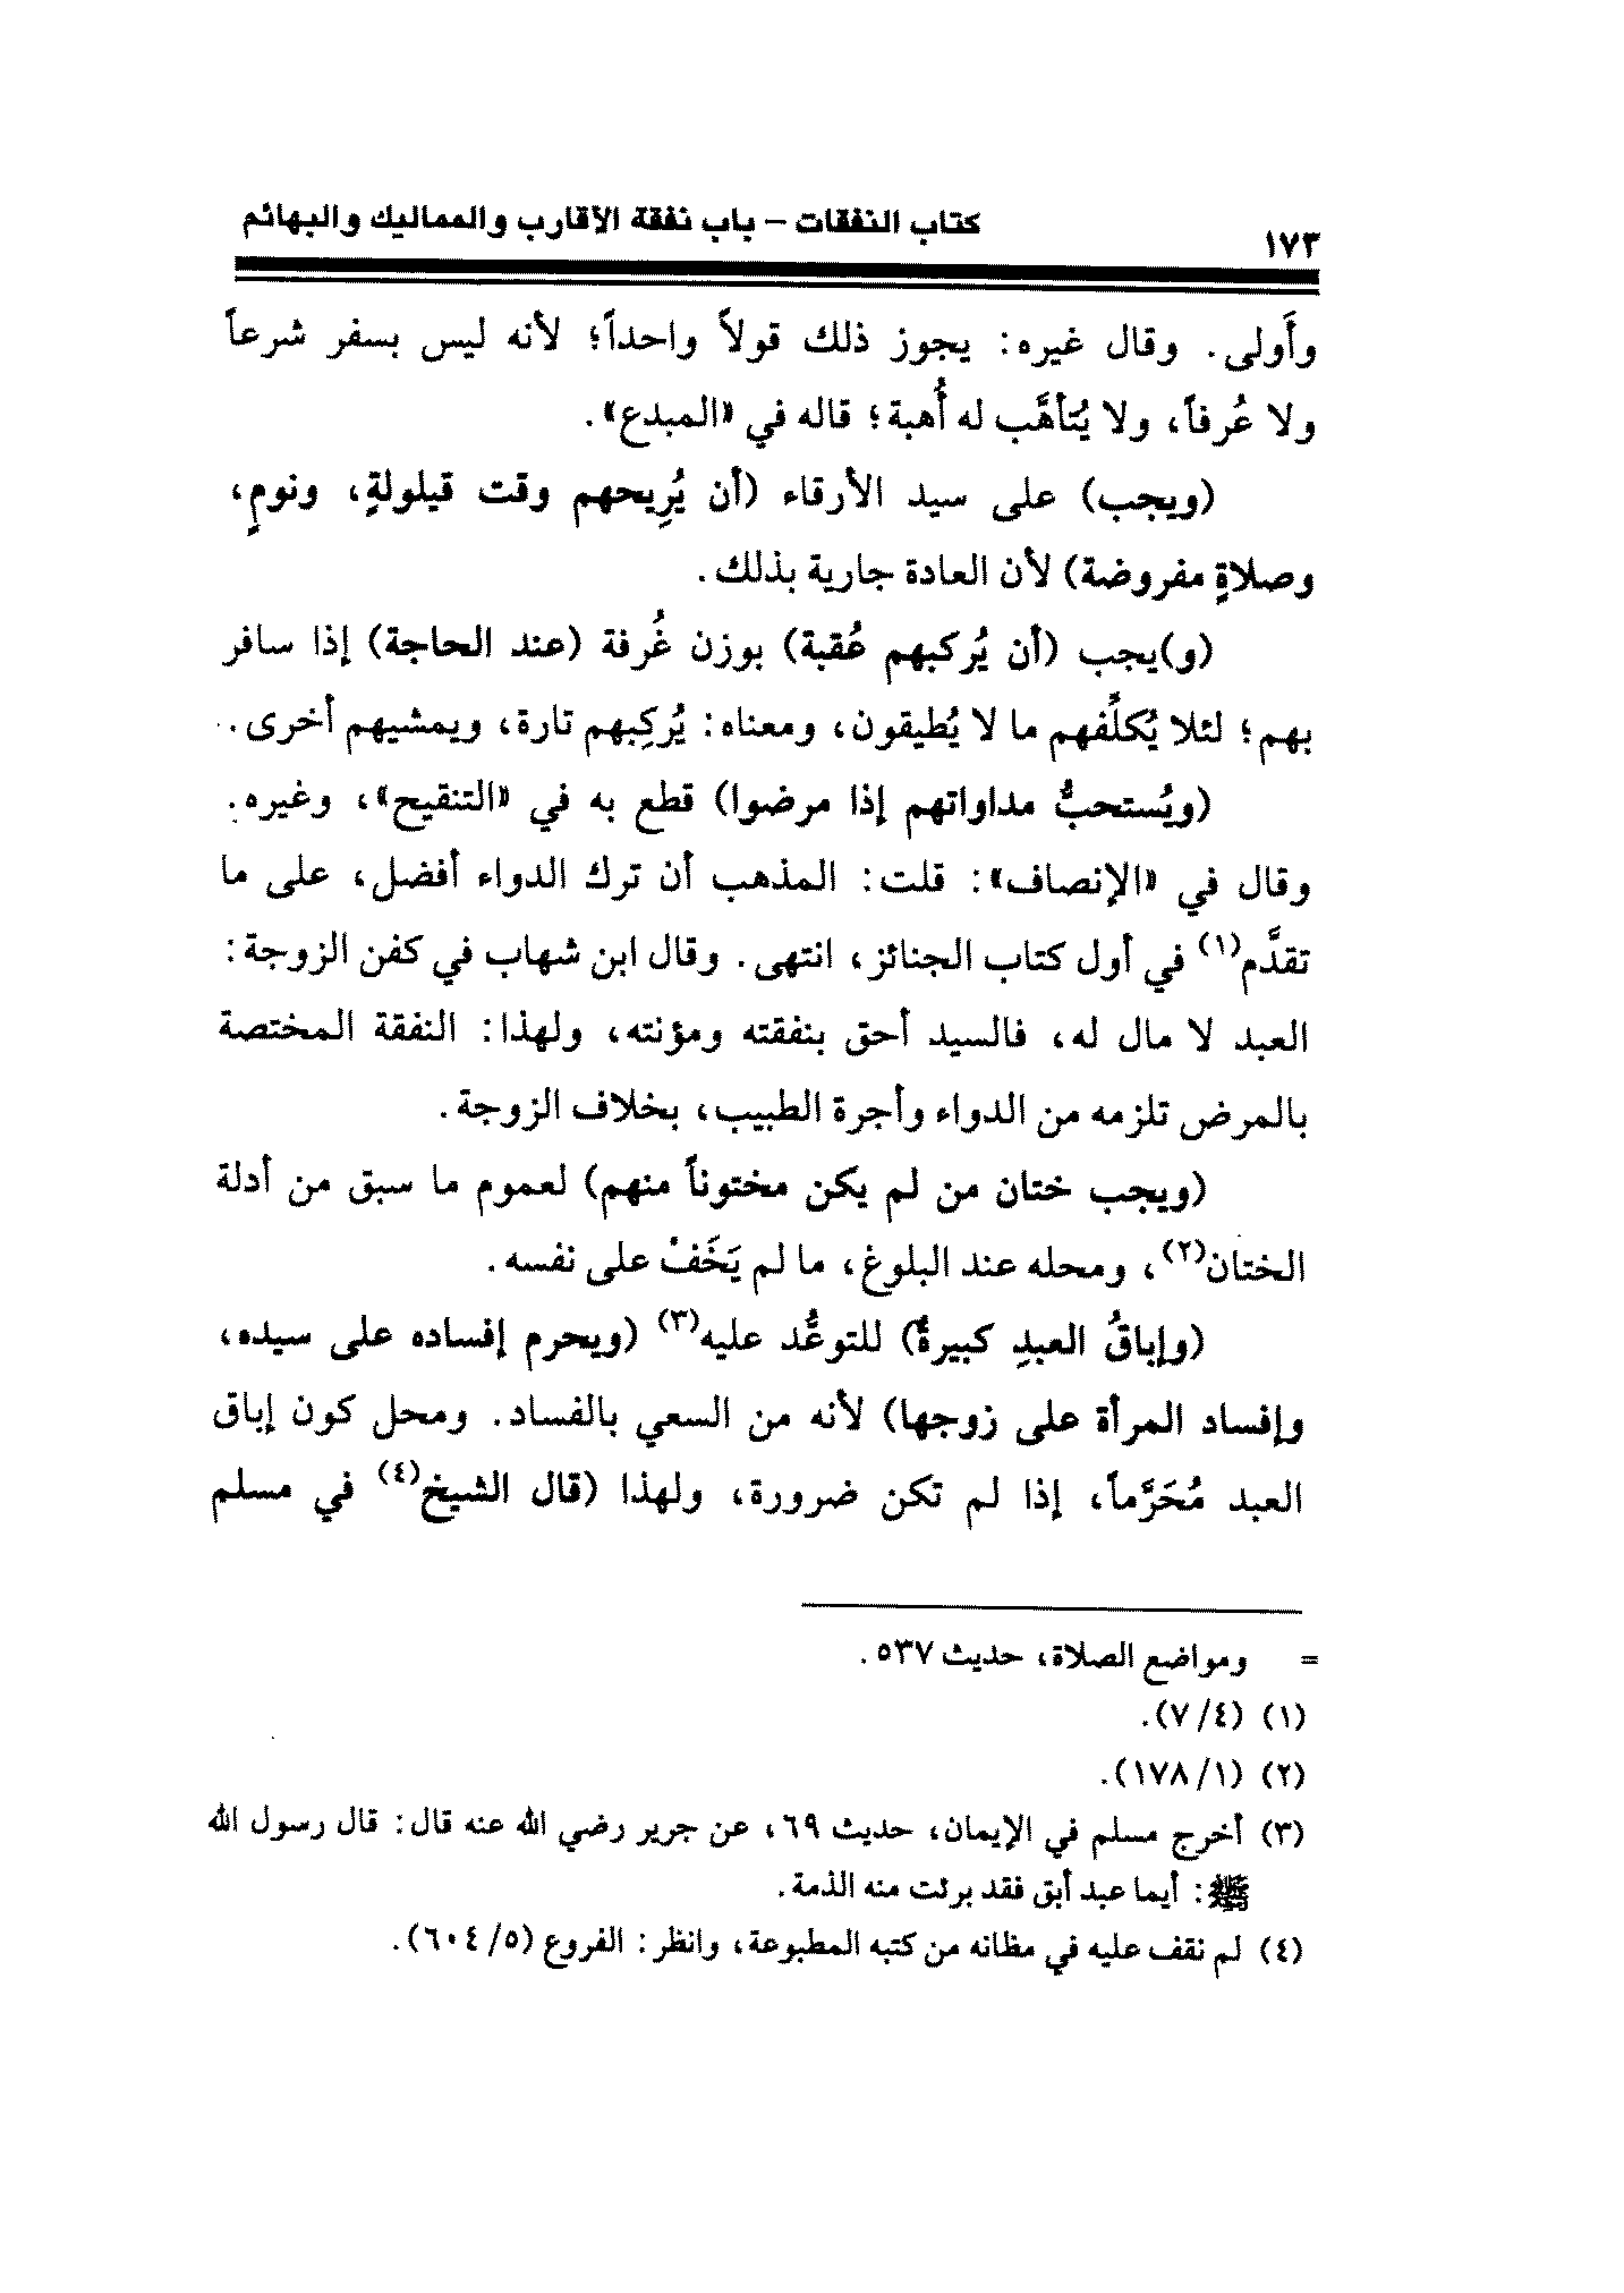 كتاب النفقات – باب نفقة الأقارب والمماليك والبهائم
١٧٣
وأَولى. وقال غيره: يجوز ذلك قولاً واحداً؛ لأنه ليس بسفر شرعاً
ولا عُرفاً، ولا يُتأهَّب له أُهبة؛ قاله في «المبدع».
(ويجب) على سيد الأرقاء (أن يُرِيحهم وقت قيلولةٍ، ونومٍ،
وصلاةٍ مفروضة) لأن العادة جارية بذلك.
(و)يجب (أن يُركبهم عُقبة) بوزن غُرفة (عند الحاجة) إذا سافر
بهم؛ لئلا يُكلِّفهم ما لا يُطيقون، ومعناه: يُركِبهم تارة، ويمشيهم أخرى.
(ويُستحبُّ مداواتهم إذا مرضوا) قطع به في «التنقيح»، وغيره.
وقال في «الإنصاف»: قلت: المذهب أن ترك الدواء أفضل، على ما
تقدَّم(١) في أول كتاب الجنائز، انتهى. وقال ابن شهاب في كفن الزوجة:
العبد لا مال له، فالسيد أحق بنفقته ومؤنته، ولهذا: النفقة المختصة
بالمرض تلزمه من الدواء وأجرة الطبيب، بخلاف الزوجة.
(ويجب ختان من لم يكن مختوناً منهم) لعموم ما سبق من أدلة
الختان(٢)، ومحله عند البلوغ، ما لم يَخَفْ على نفسه.
(وإباقُ العبدِ كبيرةٌ) للتوعُّد عليه(٣) (ويحرم إفساده على سيده،
وإفساد المرأة على زوجها) لأنه من السعي بالفساد. ومحل كون إباق
العبد مُحَرَّماً، إذا لم تكن ضرورة، ولهذا (قال الشيخ(٤) في مسلم
= ومواضع الصلاة، حديث ٥٣٧.
(١) (٤/ ٧).
(٢) (١/ ١٧٨).
(٣) أخرج مسلم في الإيمان، حديث ٦٩، عن جرير رضي الله عنه قال: قال رسول الله
ﷺ: أيما عبد أبق فقد برئت منه الذمة.
(٤) لم نقف عليه في مظانه من كتبه المطبوعة، وانظر: الفروع (٥/ ٦٠٤).